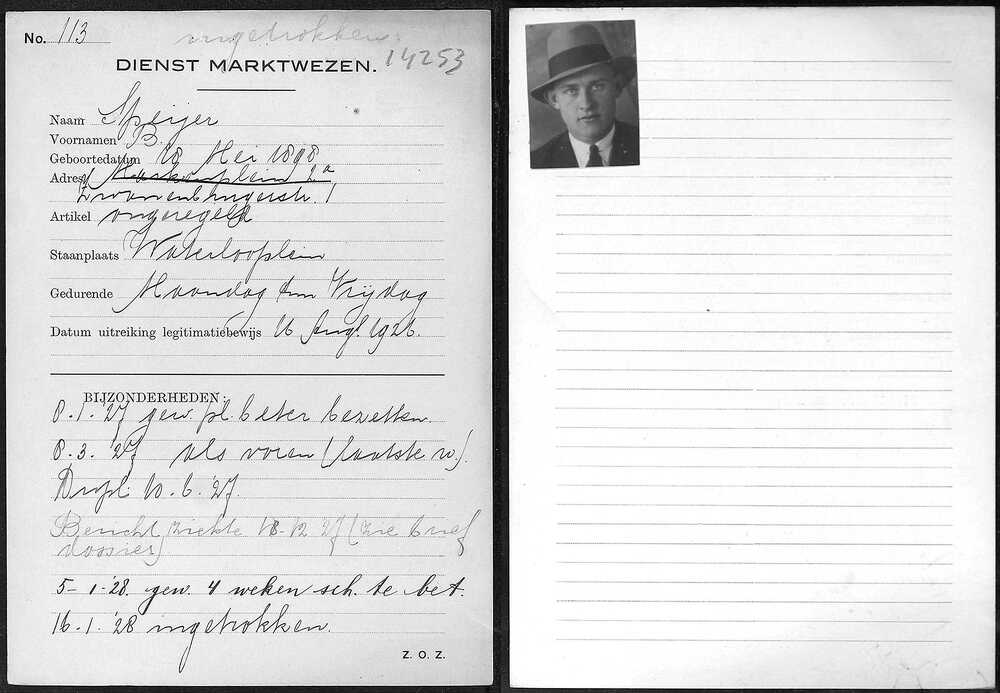 No. 113
ingetrokken.
14253
DIENST MARKTWEZEN.
Naam Speijer
Voornamen B.
Geboortedatum 18 Mei 1898
Adres Markenplein 2a
Zwanenburgerstr. 1
Artikel ongeregeld
Staanplaats Waterlooplein
Gedurende Maandag t/m Vrijdag
Datum uitreiking legitimatiebewijs 16 1926.
BIJZONDERHEDEN:
8.1.'27 gew. pl. beter bezetten.
8.3.'27 als voren (laatste w).
Dupl. 10.6.'27.
Bericht ziekte 18-12 27 (zie brief
dossier)
5-1-'28. gew. 4 weken sch. te bet.
16.1.'28 ingetrokken.
Z. O. Z.